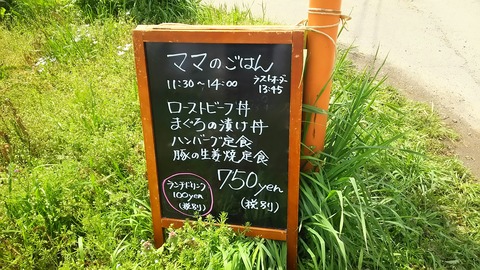 ママのごはん
11:30〜14:00 ラストオーダー
13:45
ローストビーフ丼
まぐろの漬け丼
ハンバーグ定食
豚の生姜焼定食
750yen
(税別)
ランチドリンク
100yen
(税別)